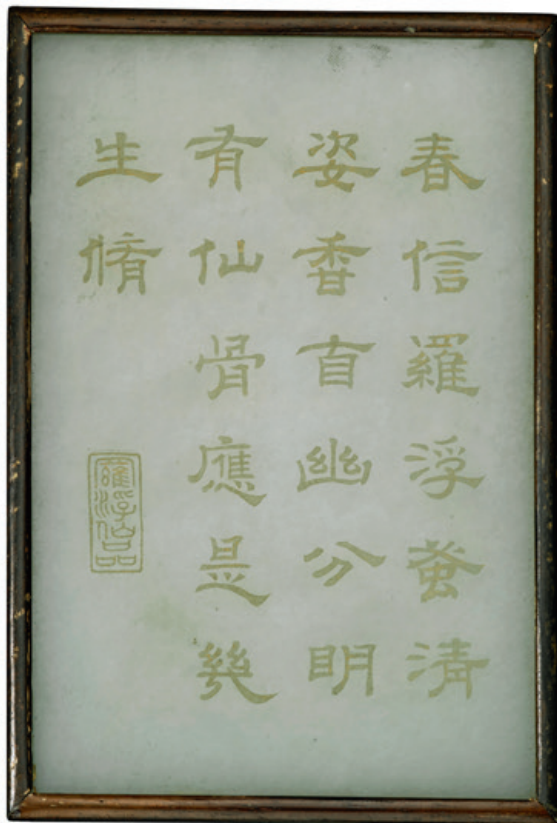 春信羅浮蚤清
姿香自幽分明
有仙骨應是幾
生脩
羅浮品